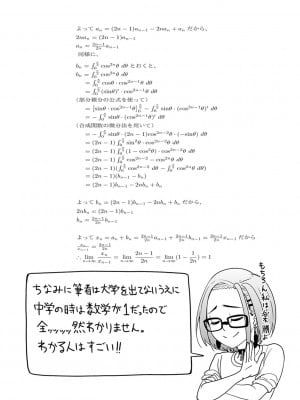 よって a_n = (2n − 1)a_{n−1} − 2na_n + a_n だから,
2na_n = (2n − 1)a_{n−1}
a_n = \frac{2n−1}{2n}a_{n−1}
同様に,
b_n = ∫_0^{\frac{π}{2}} cos^{2n}θ dθ とおくと,
b_n = ∫_0^{\frac{π}{2}} cos^{2n}θ dθ
= ∫_0^{\frac{π}{2}} cosθ · cos^{2n−1}θ dθ
= ∫_0^{\frac{π}{2}} (sinθ)′ · cos^{2n−1}θ dθ
(部分積分の公式を使って)
= [sinθ · cos^{2n−1}θ]_0^{\frac{π}{2}} − ∫_0^{\frac{π}{2}} sinθ · (cos^{2n−1}θ)′ dθ
= − ∫_0^{\frac{π}{2}} sinθ · (cos^{2n−1}θ)′ dθ
(合成関数の微分法を用いて)
= − ∫_0^{\frac{π}{2}} sinθ · (2n − 1)cos^{2n−2}θ · (−sinθ) dθ
= (2n − 1) ∫_0^{\frac{π}{2}} sin^2θ · cos^{2n−2}θ dθ
= (2n − 1) ∫_0^{\frac{π}{2}} (1 − cos^2θ) · cos^{2n−2}θ dθ
= (2n − 1) ∫_0^{\frac{π}{2}} cos^{2n−2} − cos^{2n}θ dθ
= (2n − 1)(∫_0^{\frac{π}{2}} cos^{2n−2}θ dθ − ∫_0^{\frac{π}{2}} cos^{2n}θ dθ)
= (2n − 1)(b_{n−1} − b_n)
= (2n − 1)b_{n−1} − 2nb_n + b_n
よって b_n = (2n − 1)b_{n−1} − 2nb_n + b_n だから,
2nb_n = (2n − 1)b_{n−1}
b_n = \frac{2n−1}{2n}b_{n−1}
よって x_n = a_n + b_n = \frac{2n−1}{2n}a_{n−1} + \frac{2n−1}{2n}b_{n−1} = \frac{2n−1}{2n}x_{n−1} だから
\frac{x_n}{x_{n−1}} = \frac{2n−1}{2n}
∴ \lim_{n→∞} \frac{x_n}{x_{n−1}} = \lim_{n→∞} \frac{2n − 1}{2n} = \lim_{n→∞} (1 − \frac{1}{2n}) = 1
ちなみに筆者は大学を出てないうえに
中学の時は数学が1だったので
全ッッッッ然わかりません。
わかる人はすごい!!
もちろん私は余裕よ